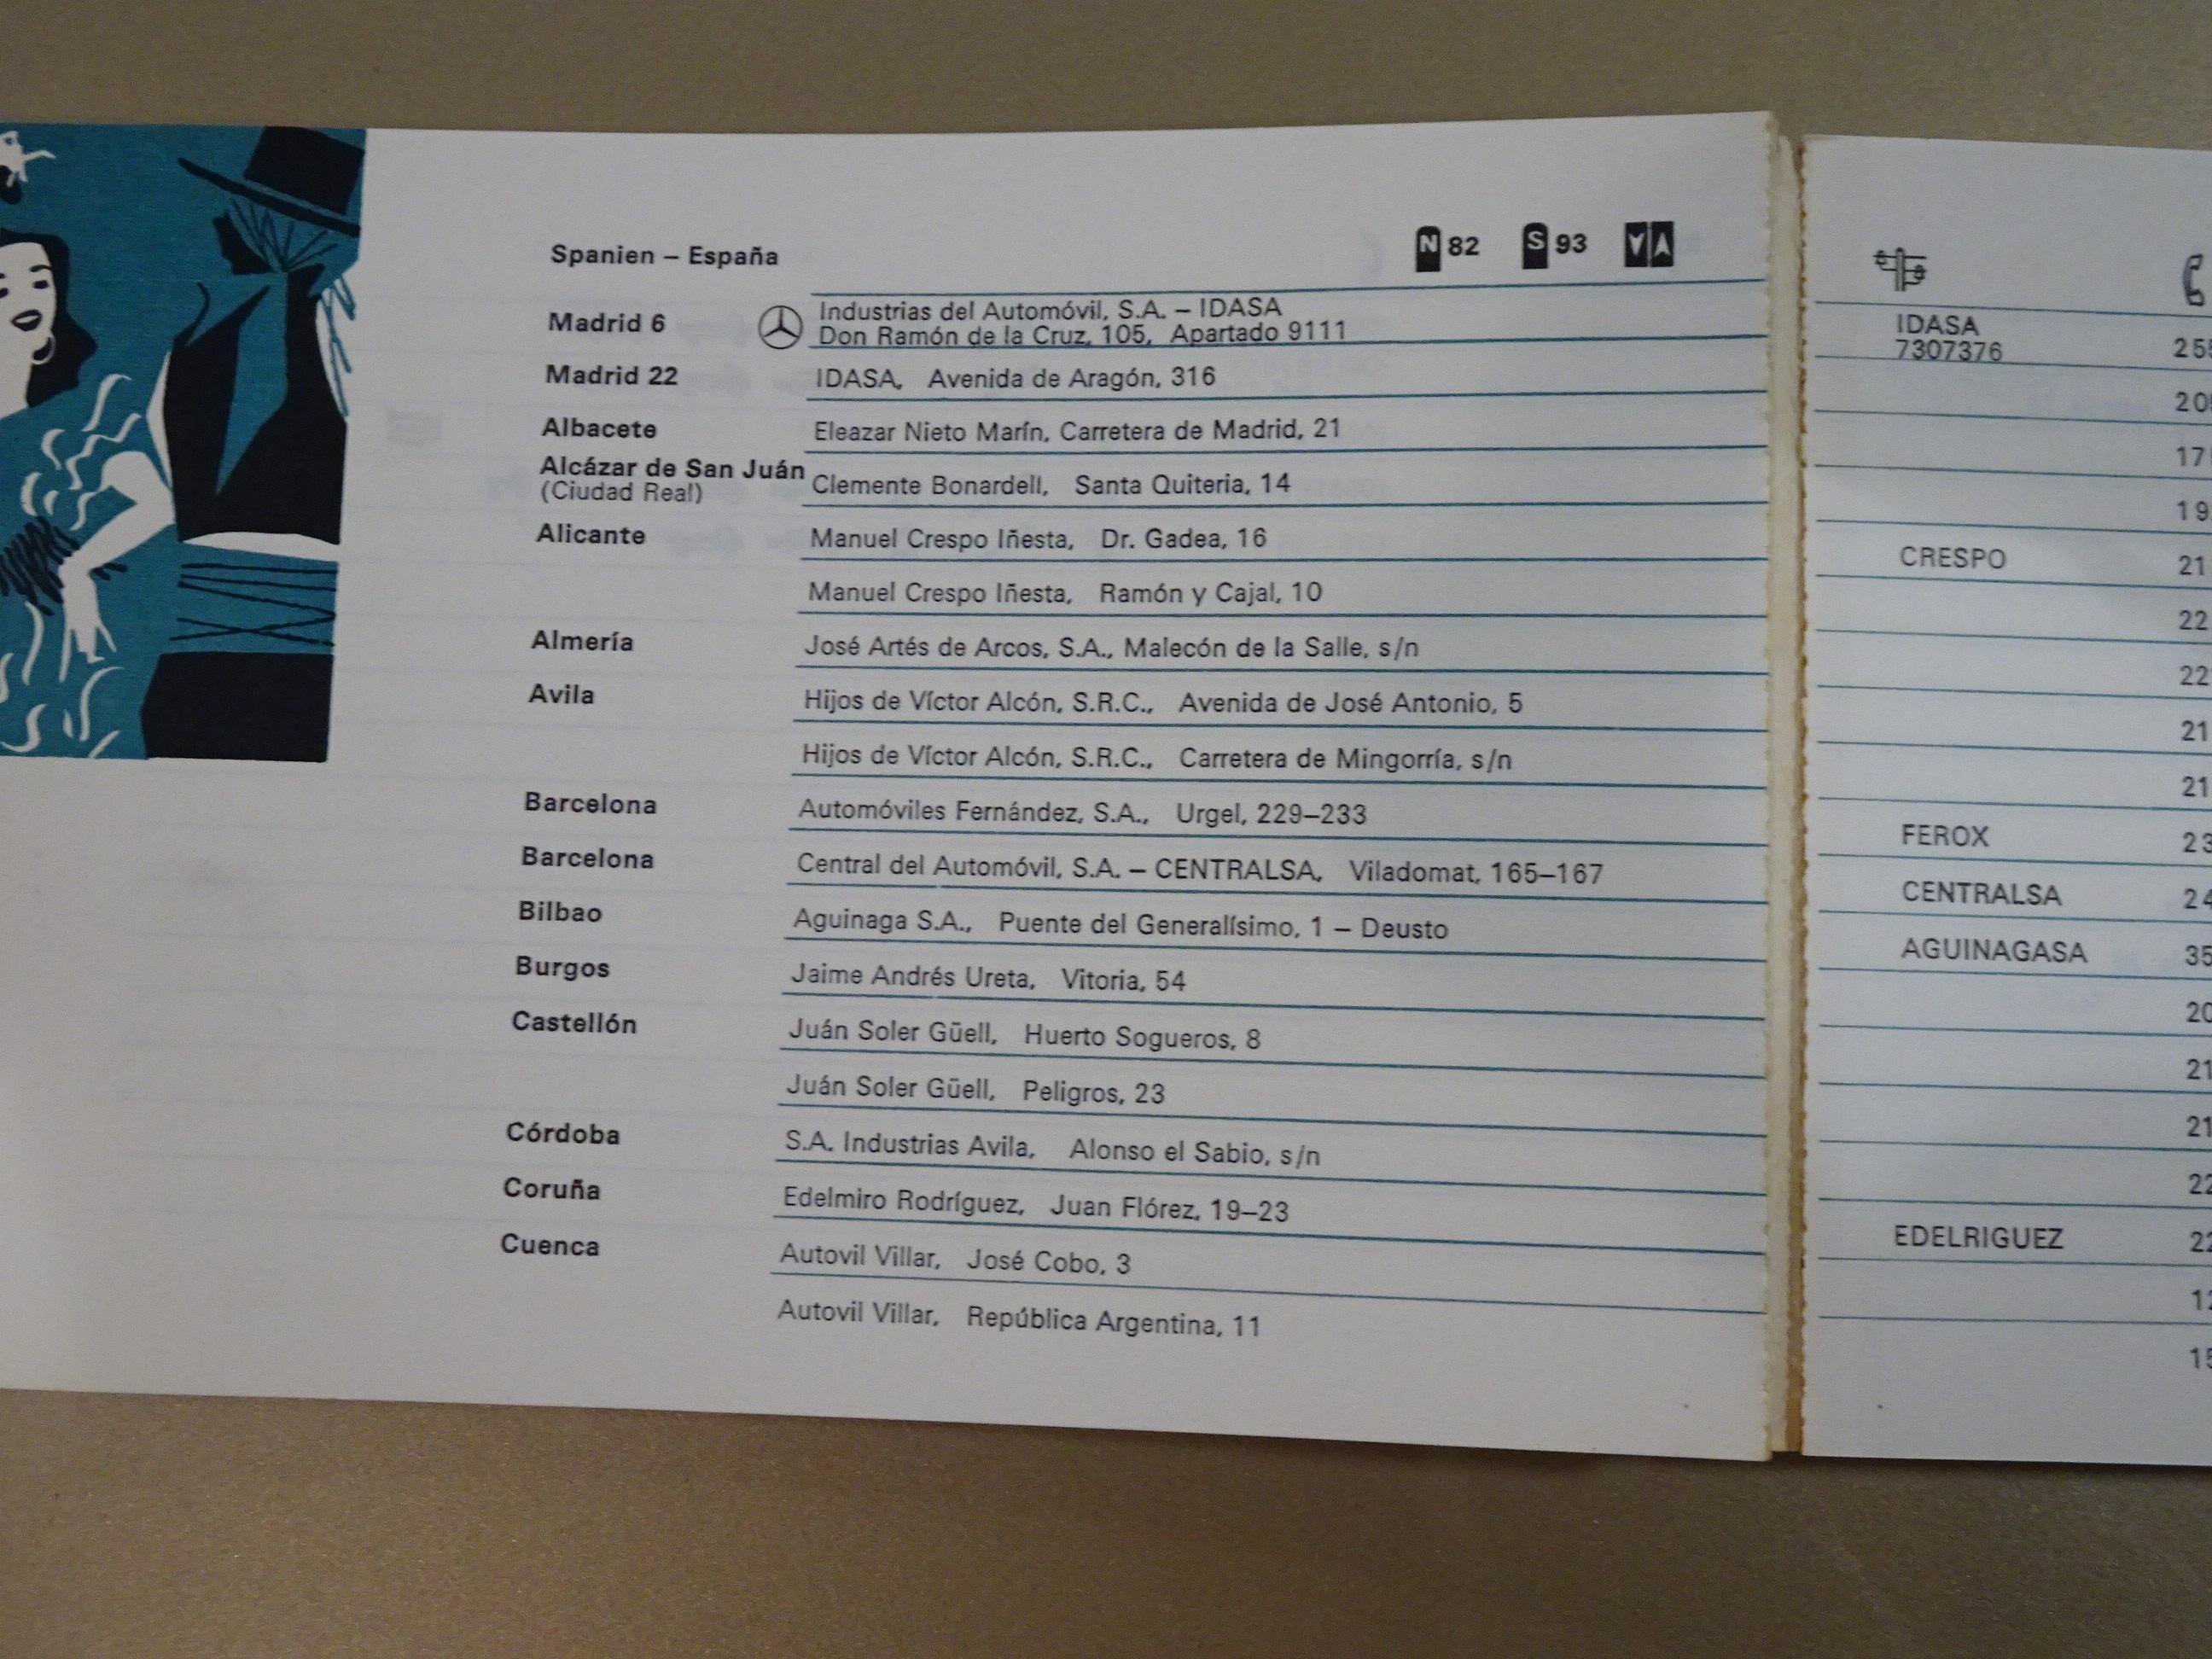 Spanien – España N 82 S 93
Madrid 6 Industrias del Automóvil, S.A. – IDASA
Don Ramón de la Cruz, 105, Apartado 9111
IDASA
7307376
Madrid 22 IDASA, Avenida de Aragón, 316
Albacete Eleazar Nieto Marín, Carretera de Madrid, 21
Alcázar de San Juán
(Ciudad Real) Clemente Bonardell, Santa Quiteria, 14
Alicante Manuel Crespo Iñesta, Dr. Gadea, 16 CRESPO
Manuel Crespo Iñesta, Ramón y Cajal, 10
Almería José Artés de Arcos, S.A., Malecón de la Salle, s/n
Avila Hijos de Víctor Alcón, S.R.C., Avenida de José Antonio, 5
Hijos de Víctor Alcón, S.R.C., Carretera de Mingorría, s/n
Barcelona Automóviles Fernández, S.A., Urgel, 229–233 FEROX
Barcelona Central del Automóvil, S.A. – CENTRALSA, Viladomat, 165–167 CENTRALSA
Bilbao Aguinaga S.A., Puente del Generalísimo, 1 – Deusto AGUINAGASA
Burgos Jaime Andrés Ureta, Vitoria, 54
Castellón Juán Soler Güell, Huerto Sogueros, 8
Juán Soler Güell, Peligros, 23
Córdoba S.A. Industrias Avila, Alonso el Sabio, s/n
Coruña Edelmiro Rodríguez, Juan Flórez, 19–23 EDELRIGUEZ
Cuenca Autovil Villar, José Cobo, 3
Autovil Villar, República Argentina, 11